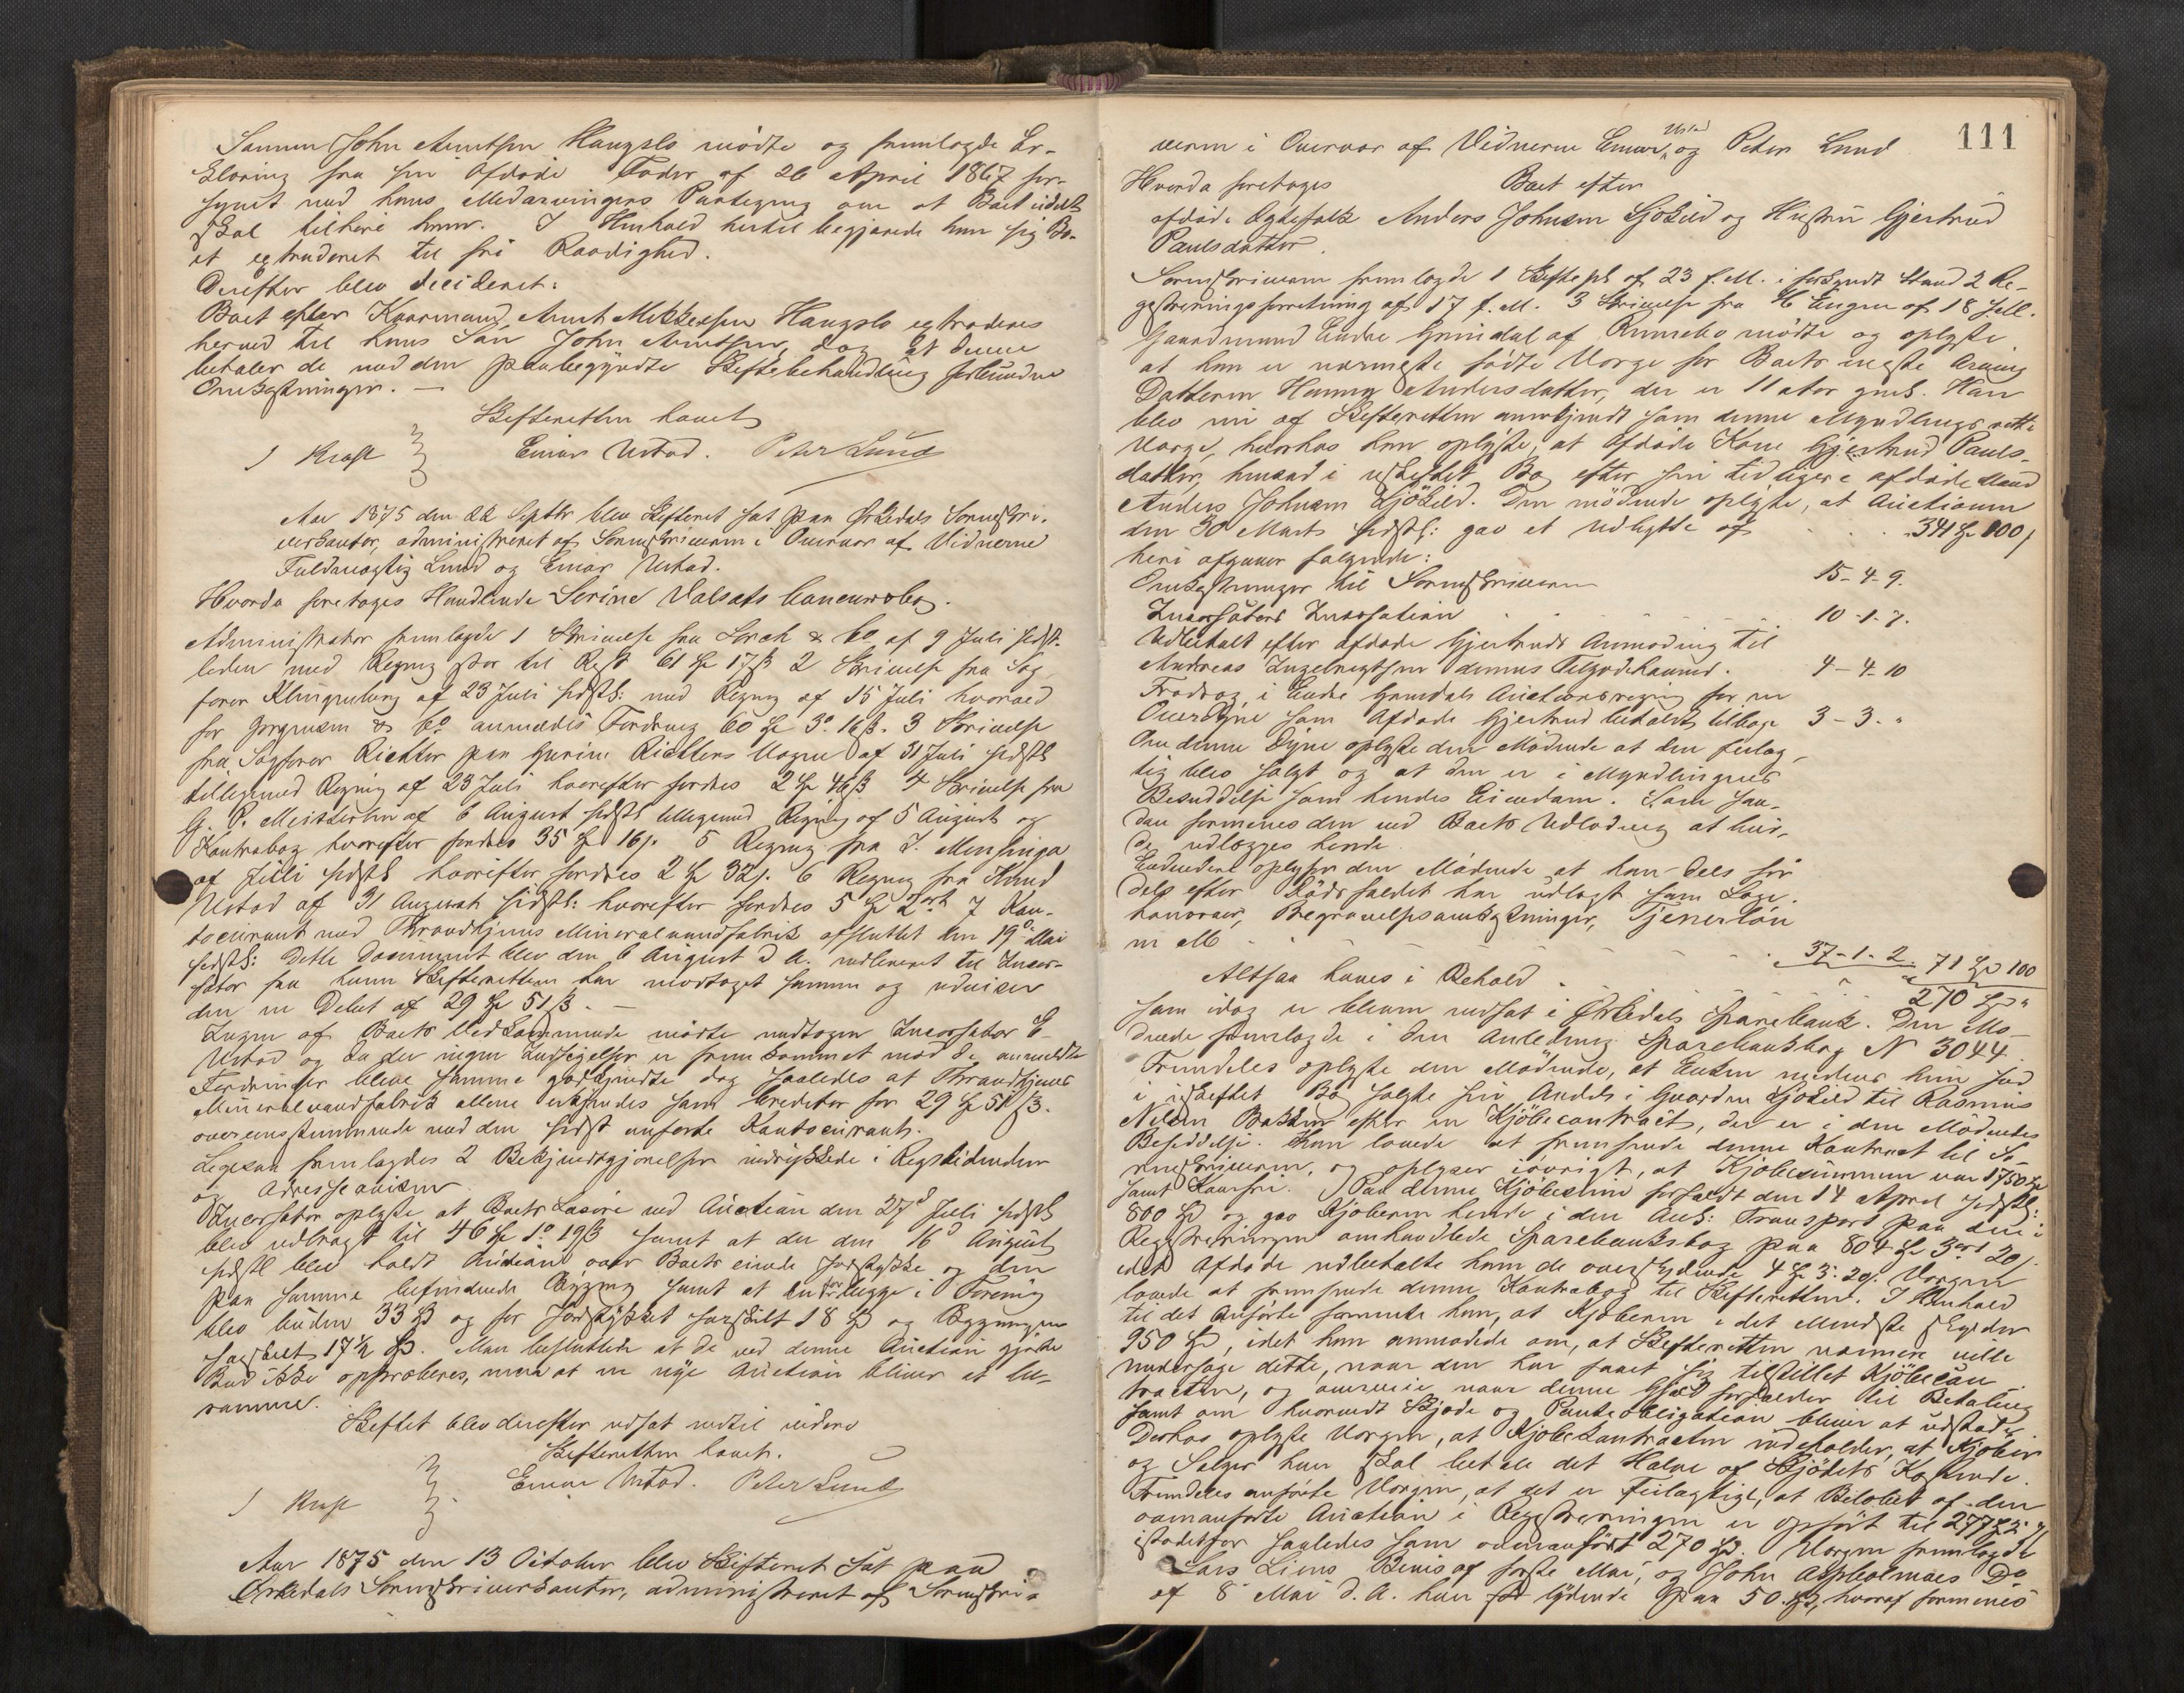 Sønnen John Arntsen Haugslo mødte og fremlagde Er-
klæring fra sin Afdøde Fader af 26 April 1867 for-
synet med hans Medarvingers Paategning om at Boet udelt
skal tilhøre ham. I Henhold hertil begjærede han sig Bo-
et extraderet til fri Raadighed.
Derefter blev decideret:
Boet efter Kaarmand Arnt Mikkelsen Haugslo extraderes
herved til hans Søn John Arntsen, dog at denne
betaler de med den paabegyndte Skiftebehandling forbundne
Omkostninger. —
Skifteretten hævet
J Kraft Einar Ustad. Peter Lund
Aar 1875 den 22 Septbr blev Skifteret sat paa Ørkedals Sorenskri-
verkontor, administreret af Sorenskriveren i Overvær af Vidnerne
Fuldmægtig Lund og Einar Ustad.
Hvorda foretoges Handlende Serine Valsøts Concursbo.
Administrator fremlagde 1 Skrivelse fra Lorck & Co af 9 Juli sidst-
leden med Regning stor til Rest 61 Sp 17 ß 2 Skrivelse fra Sag
fører Klingenberg af 23 Juli sidstl: med Regning af 15 Juli hvorved
for Jørgensen & Co anmeldes Fordring 60 Sp 3 o 16 ß. 3 Skrivelse
fra Sagfører Richter paa Gurine Richters Vegne af 31 Juli sidstl
tilligemed Regning af 23 Juli hvorefter fordres 2 Sp 46 ß 4 Skrivelse fra
G. P. Meisterlin af 6 August sidstl tilligemed Regning af 5 August og
Kontrabog hvorefter fordres 35 Sp 16 ß. 5 Regning fra J. Mensinga
af Juli sidstl hvorefter fordres 2 Sp 32 ß. 6 Regning fra Arnd
Ustad af 31 August sidstl: hvorefter fordres 5 Sp 2 ort 7 Kon-
tocurant med Throndhjems Mineralvandfabrik afsluttet den 19de Mai
sidstl: Dette Document blev den 6 August d A. udleveret til Incas-
sator fra hvem Skifteretten har modtaget samme og udviser
den en Debet af 29 Sp 51 ß. —
Ingen af Boets Vedkommende mødte undtagen Incassator E
Ustad og da der ingen Indsigelser er fremkommet mod de anmeldte
Fordringer bleve samme godkjendte dog saaledes at Throndhjems
Mineralvandfabrik allene erkjendes som Creditor for 29 Sp 51 ß.
overensstemmende med den sidst anførte Kontocurant.
Ligesaa fremlagdes 2 Bekjendtgjørelser indrykkede i Rigstidenden
og Adresseavisen
Incassator oplyste at Boets Løsøre ved Auction den 27d Juli sidstl
blev udbragt til 46 Sp 1 o 19 ß samt at der den 16d August
sidstl blev holdt Auction over Boets eiende Jordstykke og den
paa samme befindende Bygning samt at der for begge i Forening
blev buden 33 Sp og for Jordstykket særskilt 18 Sp og Bygningen
særskilt 17½ Sp. Man besluttede at de ved denne Auction gjorte
Bud ikke approberes, men at en nye Auction bliver at be-
ramme.
Skiftet blev derefter udsat indtil videre
Skifteretten hævet.
J Kraft Einar Ustad. Peter Lund
Aar 1875 den 13 October blev Skifteret sat paa
Ørkedals Sorenskriverkontor, administreret af Sorenskri-
111
veren i Overvær af Vidnerne Einar Ustad og Peter Lund
Hvorda foretoges Boet efter
afdøde Egtefolk Anders Johnsen Sjøkild og Hustru Gjertrud
Paulsdatter.
Sorenskriveren fremlagde 1 Skifteptl af 23 f. M. i forkyndt Stand 2 Re-
gistreringsforretning af 17 f. M. 3 Skrivelse fra H Engen af 18 f M.
Gaardmand Endre Grindal af Rennebo mødte og oplyste
at han er nærmeste fødte Værge for Boets eneste Arving
Datteren Hanna Andersdatter, der er 11 Aar gml. Han
blev nu af Skifteretten anerkjendt som denne Myndlings rette
Værge, hvorhos han oplyste, at Afdøde Kone Gjertrud Pauls-
datter, hensad i uskiftet Bo efter sin tidligere afdøde Mand
Anders Johnsen Sjøkild. Den mødende oplyste, at Auctionen
den 30 Marts sidstl: gav et Udbytte af . . . 341 Sp 100 ß
heri afgaaer følgende:
Omkostninger til Sorenskriveren 15 - 4 - 9.
Incassators Incassation . . . 10 - 1. 7.
Udbetalt efter Afdøde Gjertruds Anmodning til
Andreas Ingebrigtsen dennes Tilgodehavend. 4 - 4 - 10
Fradrag i Endre Grindals Auctionsregning for en
Overdyne som Afdøde Gjertrud beholdt tilbage 3 - 3. "
Om denne Dyne oplyste den Mødende at den feilag-
tig blev solgt og at den er i Myndlingens
Besiddelse som hendes Eiendom. Som saa-
dan formenes den ved Boets Udlodning at bur-
de udlægges hende.
Endvidere oplyser den Mødende at han dels før
dels efter Dødsfaldet har udlagt som Læge-
honorair, Begravelsesomkostninger, Tjenerløn
m M . . . 37 - 1 - 2. 71 Sp 100
Altsaa haves i Behold . . . 270 Sp "
som idag er bleven indsat i Ørkedals Sparebank. Den Mø-
dende fremlagde i den Anledning Sparebanksbog N 3044.
Fremdeles oplyste den Mødende, at Enken medens hun sad
i uskiftet Bo solgte sin Andel i Gaarden Sjøkild til Rasmus
Nilsen Bakken efter en Kjøbecontract, der er i den Mødendes
Besiddelse. Han lovede at fremsende denne Kontract til So-
renskriveren, og oplyser iøvrigt, at Kjøbesummen var 1750 Sp
samt Kaarfri. Paa denne Kjøbesum forfaldt den 14 April sidstl:
800 Sp og gav Kjøberen hende i den Anl: Transport paa den i
Registreringen omhandlede Sparebanksbog paa 804 Sp 3 ort 20 ß.
idet Afdøde udbetalte ham de overskydende 4 Sp 3. 20 ß. Værgen
lovede at fremsende denne Kontrabog til Skifteretten. I Henhold
til det Anførte formente han, at Kjøberen i det Mindste skylder
950 Sp, idet han anmodede om, at Skifteretten nærmere ville
undersøge dette, naar den har faaet sig tilstillet Kjøbecon
tracten, og ansee naar denne Gjæld forfalder til Betaling
samt om hvorvidt Skjøde og Panteobligation bliver at udstede.
Derhos oplyste Værgen, at Kjøbekontracten indeholder, at Kjøber
og Sælger hver skal betale det Halve af Skjødets Kostende.
Fremdeles anførte Værgen, at det er Feilagtigt, at Beløbet af den
ovenanførte Auction i Registreringen er opført til 277 Sp 3
istedetfor saaledes som ovenanført 270 Sp. Værgen fremlagde
Lars Liens Bevis af første Mai, og John Aspholmaes Do
af 8 Mai d. A. hver lydende paa 50 Sp, hvoraf formenes